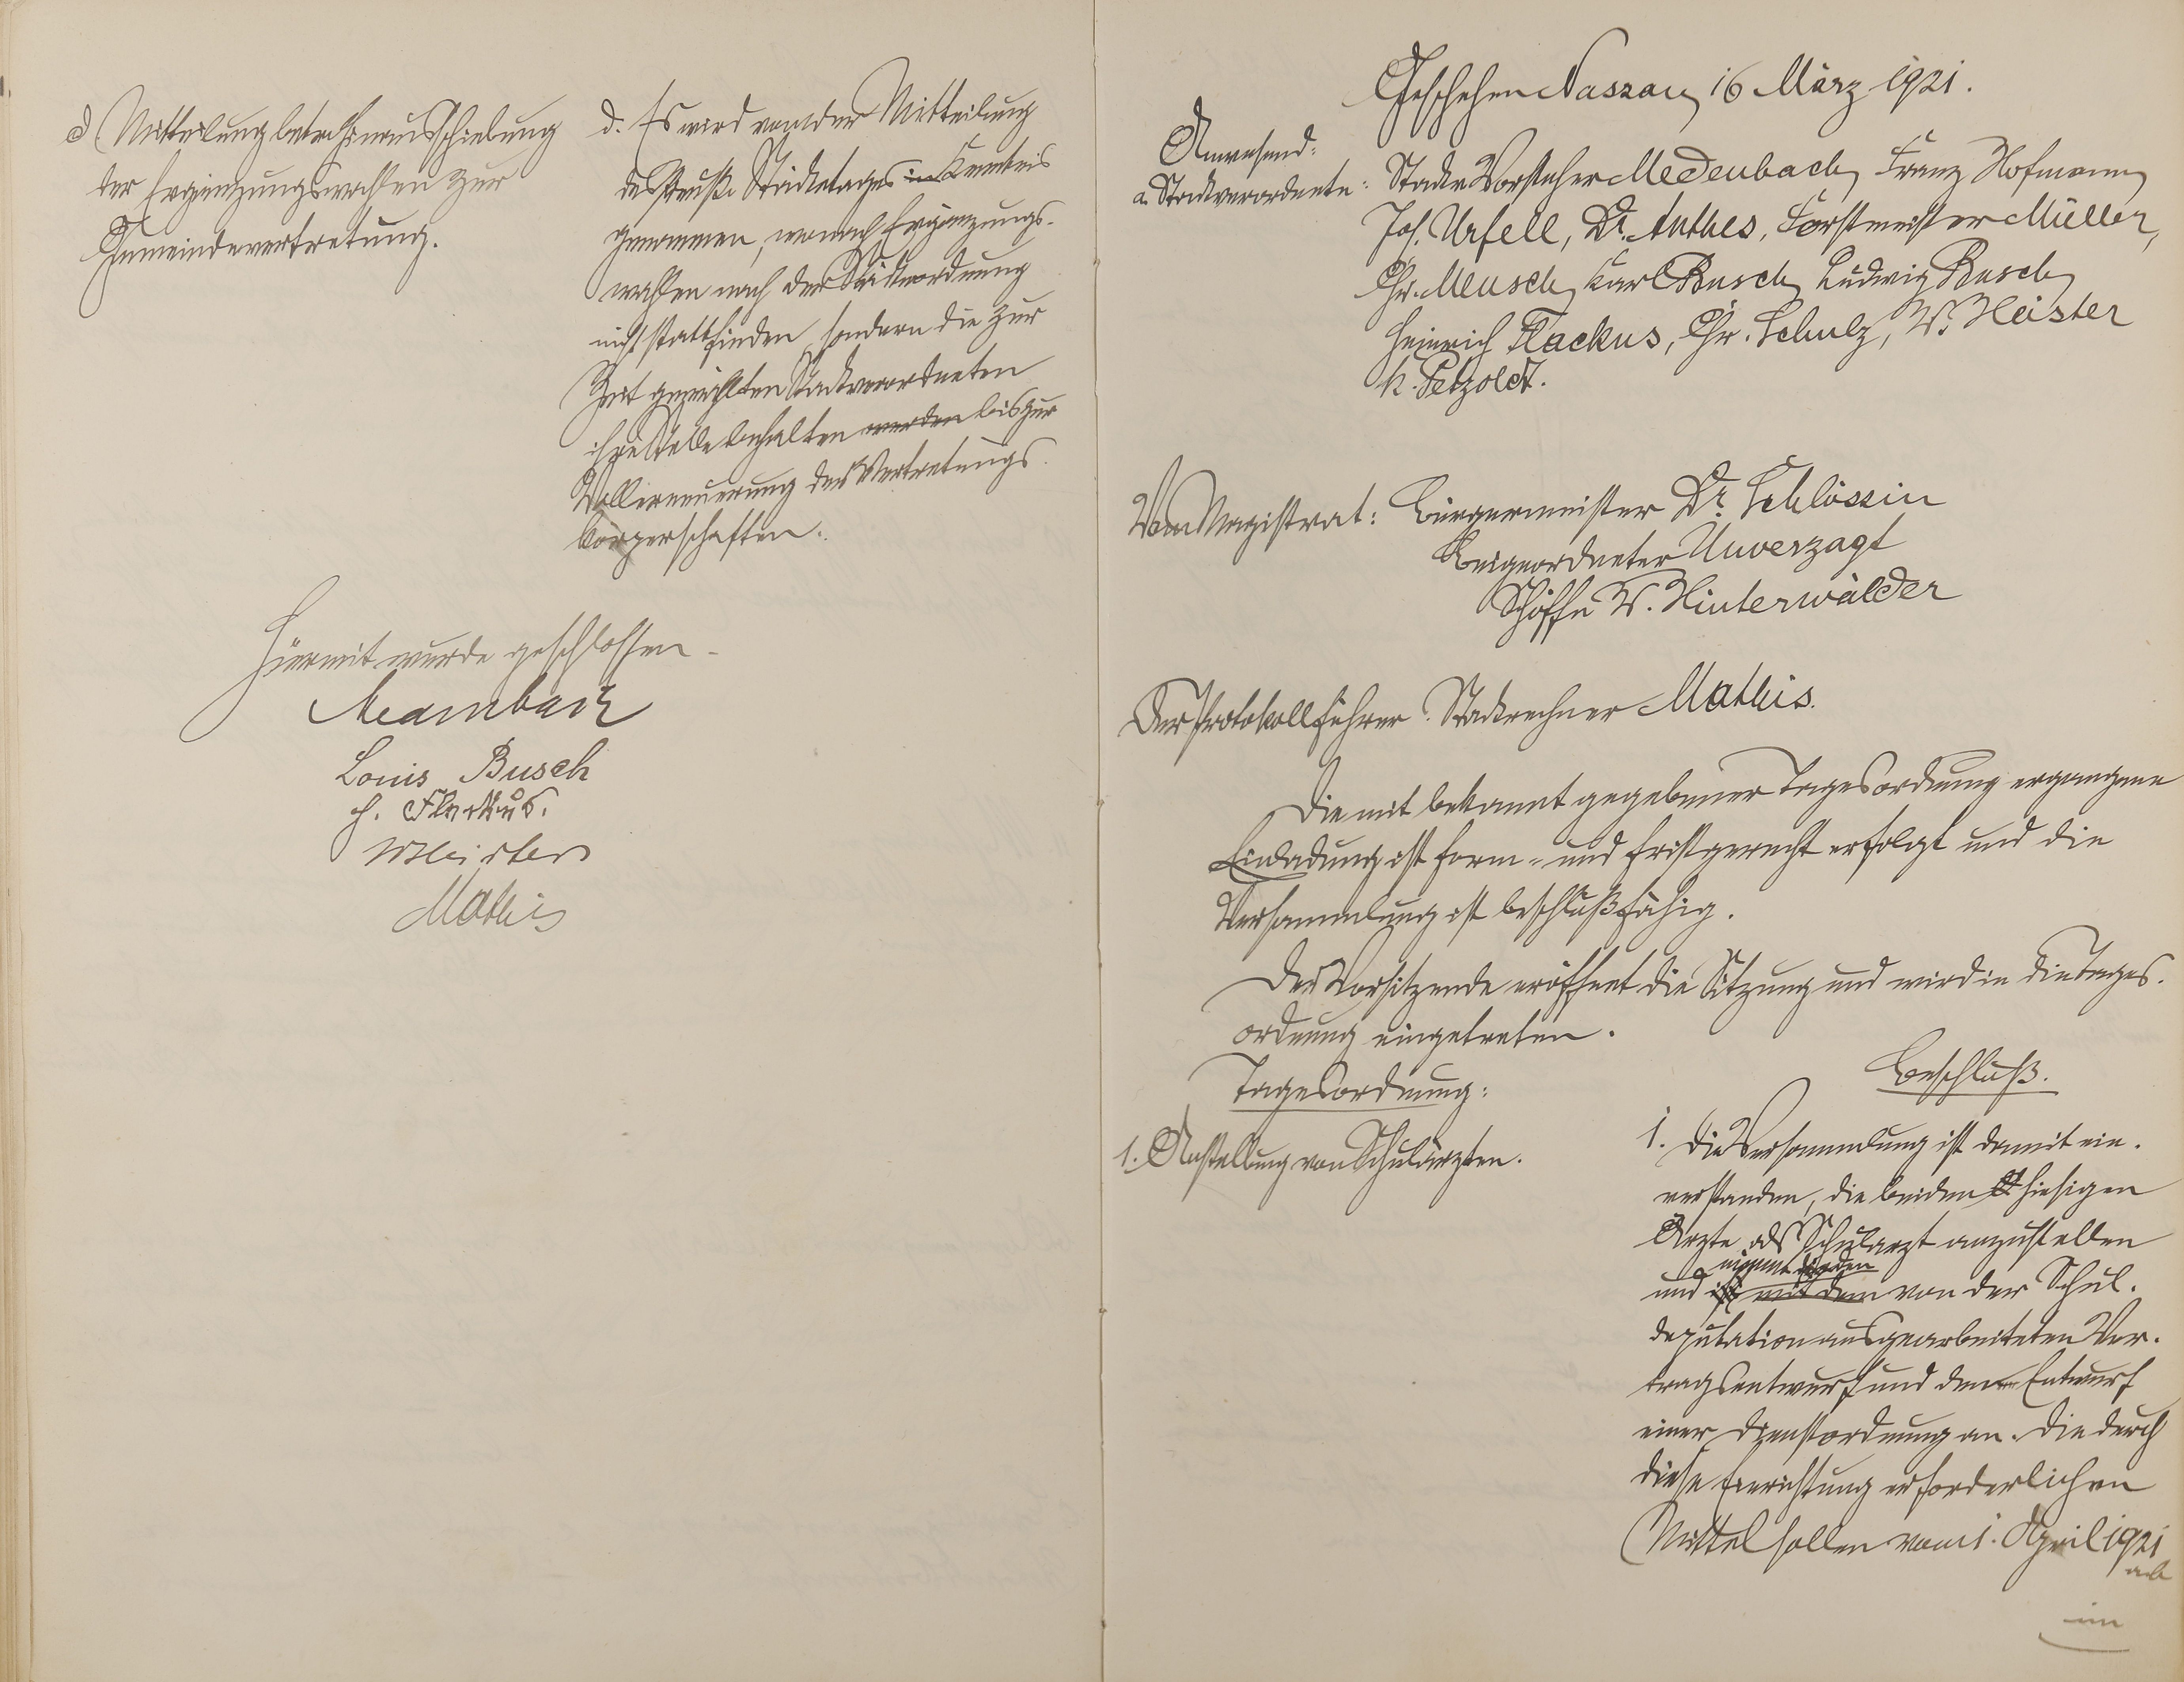 d) Mitteilung betr. Hinausschiebung
der Ergänzungswahlen zur
Gemeindevertretung.
d. Es wird von der Mitteilung
des Preuß. Städtetages in Kenntnis
genommen, wonach Ergänzungs-
wahlen nach der Städteordnung
nicht stattfinden, sondern die zur
Zeit gewählten Stadtverordneten
ihre Stelle behalten werden bis zur
Vollerneuerung der Vertretungs-
körperschaften.
Hiermit wurde geschlossen.
Medenbach
Louis Busch
H. Flackus.
W Heister
Mathis
Geschehen Nassau, 16 März 1921.
Anwesend:
a. Stadtverordnete: Stadtv. Vorsteher Medenbach, Franz Hofmann,
Jos. Urfell, Dr. Anthes, Forstmeister Müller,
Chr. Meusch, Karl Busch, Ludwig Busch,
Heinrich Flackus, Chr. Schulz, W. Heister
K. Petzoldt.
Vom Magistrat: Bürgermeister Dr. Schlössin
Beigeordneter Unverzagt
Schöffe W. Hinterwälder
Der Protokollführer: Stadtrechner Mathis.
Die mit bekannt gegebener Tagesordnung ergangene
Einladung ist form- und fristgerecht erfolgt und die
Versammlung ist beschlußfähig.
Der Vorsitzende eröffnet die Sitzung und wird in die Tages-
ordnung eingetreten.
Tagesordnung:
Beschluß.
1. Anstellung von Schulärzten.
1. Die Versammlung ist damit ein-
verstanden, die beiden hiesigen
Ärzte als Schularzt anzustellen
nimmt den
und ist mit dem von der Schul-
deputation ausgearbeiteten Ver-
tragsentwurf und den Entwurf
einer Dienstordnung an. Die durch
diese Einrichtung erforderlichen
Mittel sollen vom 1. April 1921
ab
im